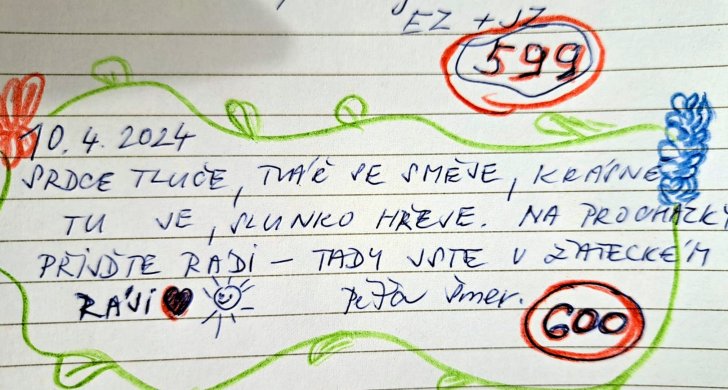 EZ + JZ
599
10. 4. 2024
SRDCE TLUČE, TVÁŘ SE SMĚJE, KRÁSNĚ
TU JE, SLUNKO HŘEJE. NA PROCHÁZKY
PŘIJĎTE RÁDI – TADY JSTE V ŽATECKÉM
RÁJI
600